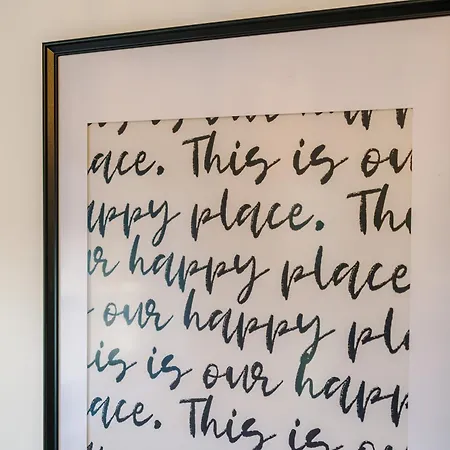 is is our happ
ace. This is ou
appy place. Th
ur happy place
our happy pl
is is our happ
ace. This is ou